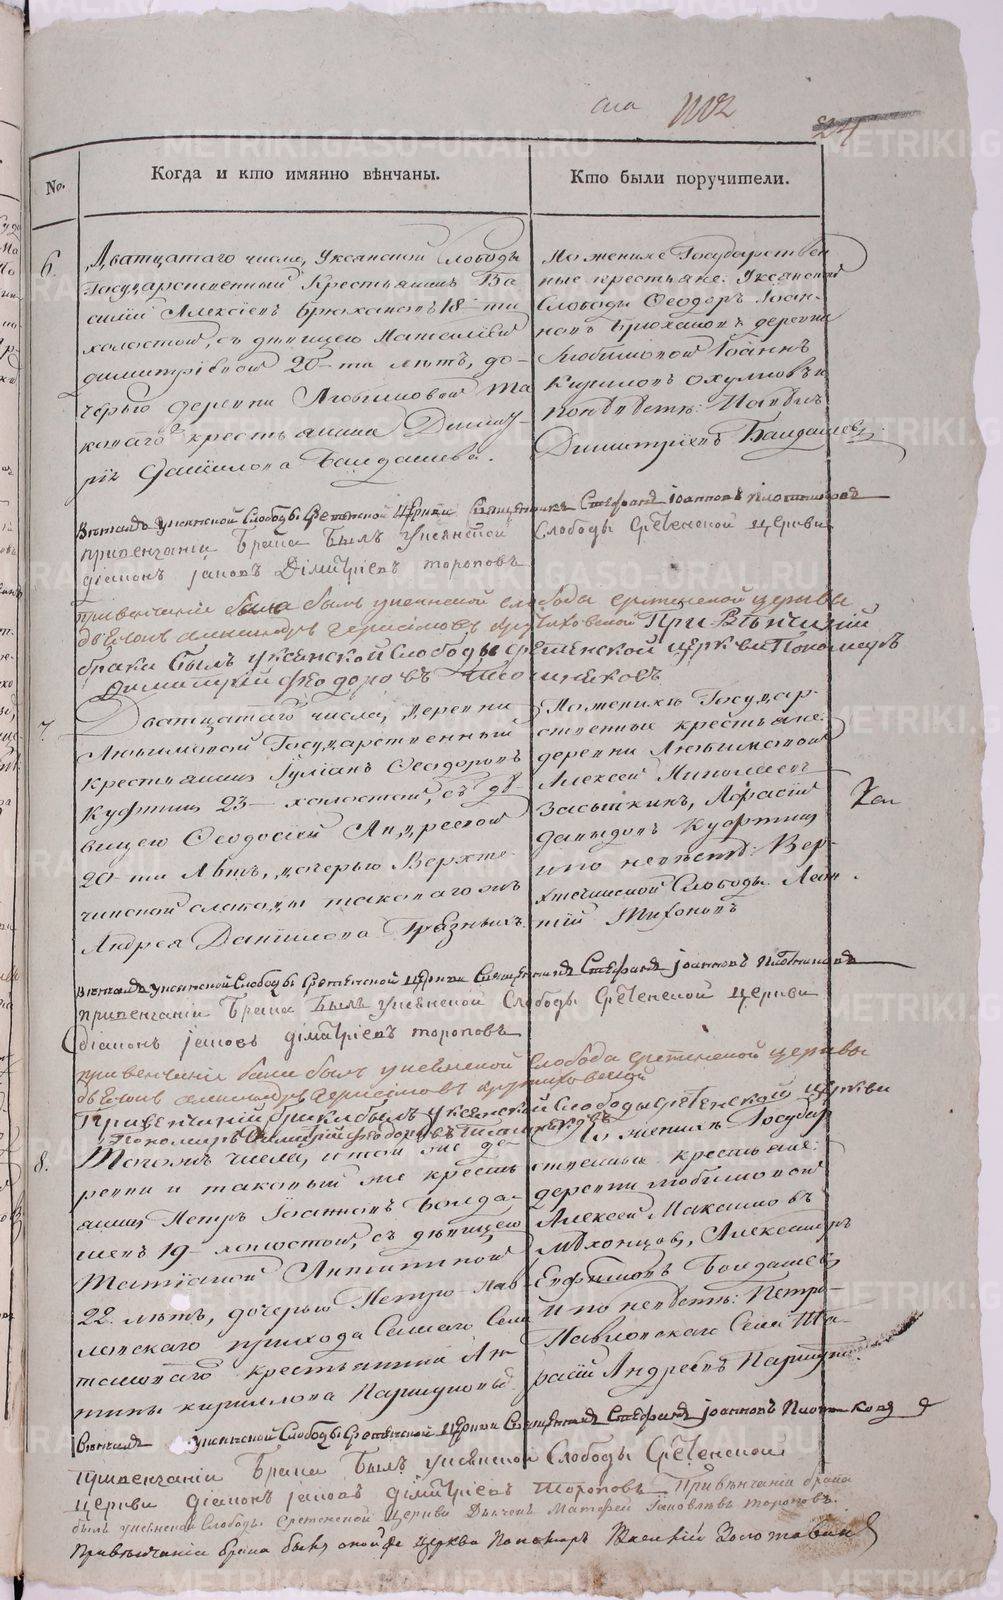 24
No.
Когда и кто имянно вѣнчаны.
Кто были поручители.
6.
Дватцатаго числа, Уксянской слободы
Государственный Крестьянинъ Ва
силій Алексіевъ Брюхановъ 18-ти
холостой, съ дѣвицею
Димитріевой 20-ти лѣтъ, до-
черью деревни Любимовой та
коваго крестьянина Димит-
рія Данилова Балдашева.
По женихѣ Государствен
ные крестьяне: Уксянской
Слободы Ѳеодоръ Іоан-
новъ Брюхановъ деревни
Любимовой Іоаннъ
Кириловъ
по невѣстѣ:
Димитріевъ Балдашевъ
Вѣнчалъ Уксянской Слободы Сретенской Церкви Священникъ Стефанъ Іоанновъ Плотниковъ
привенчаніи брака былъ Уксянской Слободы Сретенской церкви
діаконъ Іаковъ Дімитріевъ Тороповъ
привенчаніи брака былъ уксянской слободы сретенской церкви
дьечокъ александръ герасимовъ
При Вѣнчаніи
брака былъ Уксянской Слободы Сретенской церкви Пономарь
Димитрій Феодоровъ
7.
Дватцатаго числа, деревни
Любимовой Государственный
крестьянинъ Іуліанъ Ѳеодоровъ
Куфтинъ 23 холостой, съ дѣ-
вицею Ѳеодосіей Андреевой
20-ти лѣтъ, дочерью Верхте-
чинской слободы таковаго жъ
Андрея Данилова Грязныхъ
По женихѣ Государ-
ственные крестьяне:
деревни Любимовой
Алексей Николаевъ
Засыпкинъ,
Давыдовъ Куфтинъ
и по невѣстѣ: Вер-
хтечинской Слободы Леон
тій Тихоновъ
Вѣнчалъ Уксянской Слободы Сретенской Церкви Священникъ Стефанъ Іоанновъ Плотниковъ
привенчаніи брака былъ Уксянской Слободы Сретенской церкви
діаконъ Іаковъ Діматріевъ Тороповъ
привенчаніи брака былъ уксянской слободы сретенской церкви
дьечокъ александръ герасимовъ
Привенчаніи брака былъ Уксянской Слободы Сретенской церкви
Пономарь Димитрій Феодоровъ
8.
Тогожъ числа, и той же де-
ревни и таковый же крестья
янинъ Петръ Іоанновъ Балда-
шевъ 19 холостой, съ дѣвицею
Татіаной Антипиной
22 лѣтъ, дочерью Петро-Пав
ловскаго прихода Самаго Села
таковаго крестьянина Ан
типы Кирилова Паршукова
По женихѣ Государ
ственные крестьяне:
деревни Любимовой
Алексей Максимовъ
Мѣхонцовъ, Александръ
Евфимовъ Балдашевъ
И по невѣстѣ: Петро-
Павловскаго Села Та-
расій Андреевъ Паршуковъ.
Вѣнчалъ Уксянской Слободы Сретенской Церкви Священникъ Стефанъ Іоанновъ Плотниковъ
привенчаніи брака былъ Уксянской Слободы Сретенской
церкви діаконъ Іаковъ Діматріевъ Тороповъ. Привѣнчаніи брака
былъ уксянской Слободы Сретенской Церкви Дьячекъ Матфей Іаковлевъ Тороповъ.
Привѣнчаніи брака былъ оной же церкви Пономарь Василій Золотавинъ
METRIKI.GASO-URAL.RU